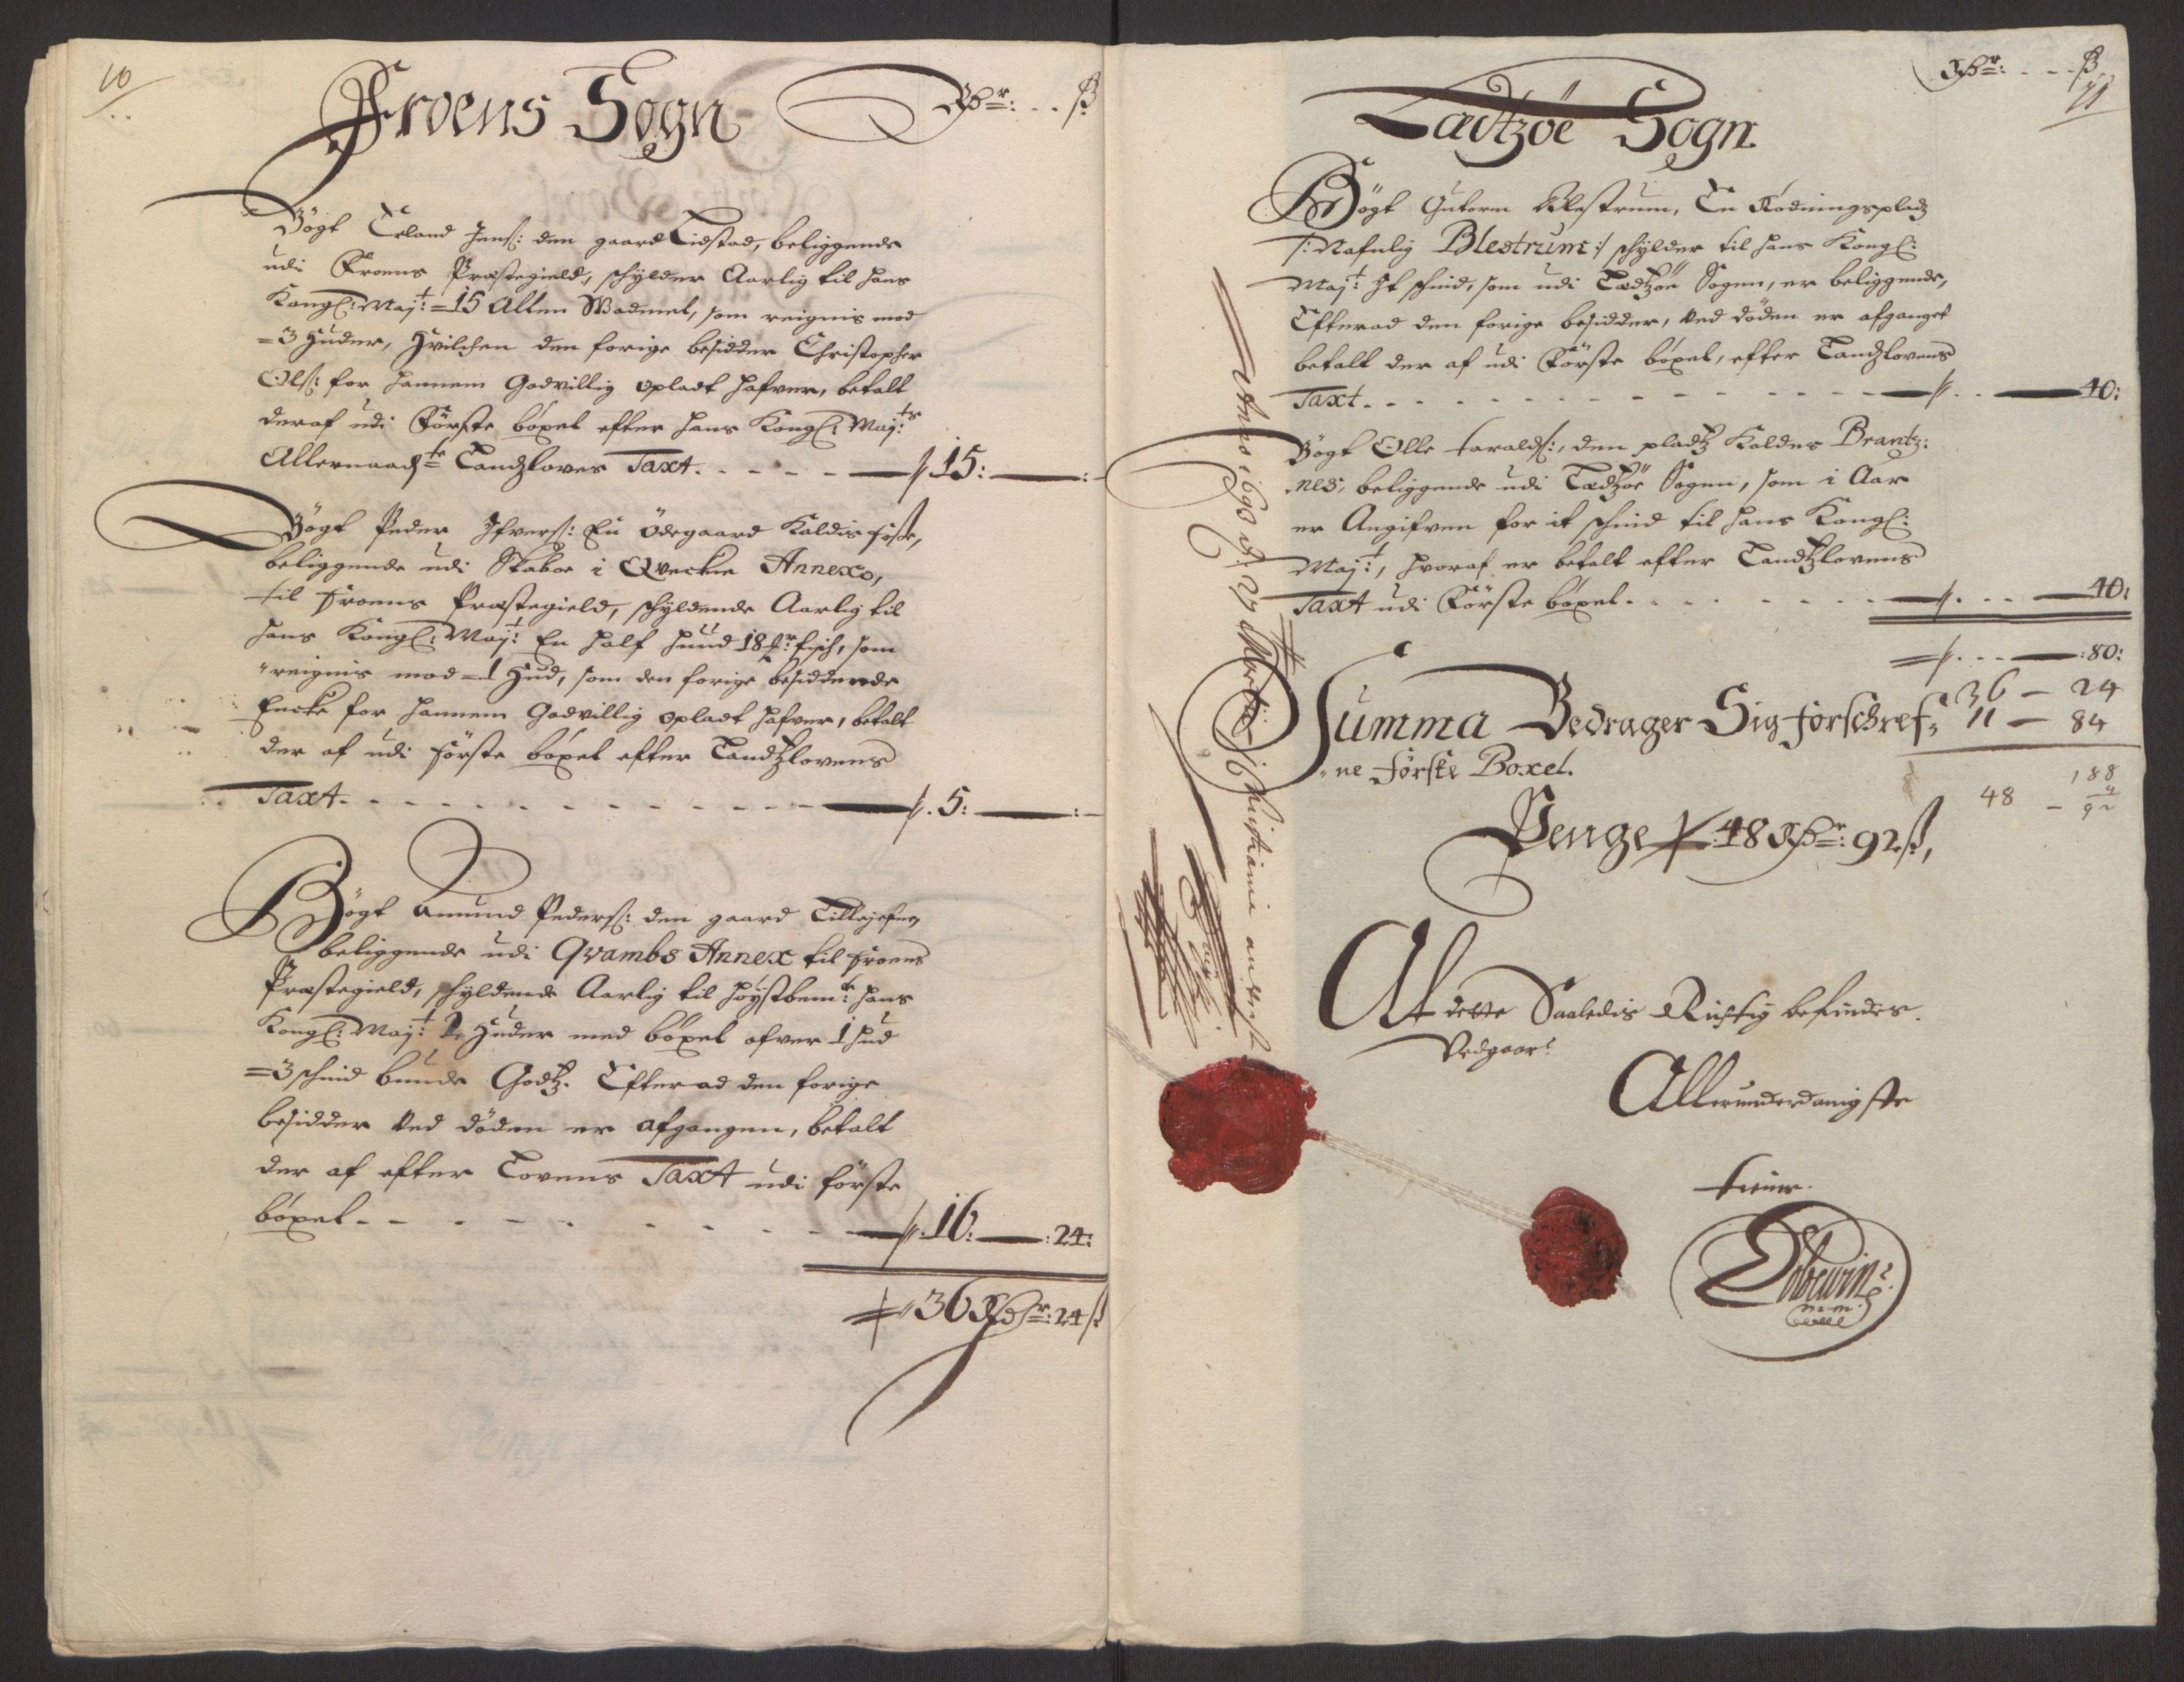 10
Froens Sogn Rdr: . . ß
Bögt Erland Jens: den gaard Lidstad, beliggende
udi Froens Præstegield, schylder Aarlig til Hans
Kongl: Maj:t =15 Allen Wadmel, som reignis mod
=3 Huder, Hvilchen den forige besidder Christopher
Ols: for hannem Godvillig opladt hafver, betalt
deraf udi Förste böxel efter Hans Kongl: Maj:ts
Allernaads:te Landsloves Taxt. - - - - - 15: — : -
Bögt Peder Ifvers: En Ödegaard Kaldis
beliggende udi Skaboe i Qveckne Annexs,
til Froens Præstegield, schyldende Aarlig til
Hans Kongl: Maj:t En half hund 18 fisch, som
reignis mod =1 Hud, som den forige besiddende
Encke for hannem Godvillig opladt hafver, betalt
der af udi förste böxel efter Landtzlovens
Taxt. - - - - - - - - - 5: — : -
Bögt Amund Peders: den gaard
beliggende udi Qvambs Annex til Froens
Præstegield, schyldende Aarlig til höystbem:te Hans
Kongl: Maj:t 2 Huder med böxel ofver 1 hud
=3 schind bunde Godtz. Efterad den forige
besidder ved döden er afgangen, betalt
der af efter Lovens Taxt udi förste
böxel - - - - - - - - 16: — : 24:
36 Rdr: 24 ß
Rdr: . - - ß
11
Ladtzöe Sogn.
Bögt Gutorm Blestrum, En Rödningspladz
/: Nafnlig Blestrum :/ schylder til Hans Kongl:
Maj:t It schind, som udi Ladtzöe Sogen, er beliggende,
Efterad den forige besidder, ved döden er afganget
betalt der af udi Förste böxel, efter Landzlovens
Taxt. - - - - - - - - - - — 40:
Bögt Olle Haralds:, den pladtz Kaldes Brantz:
nes, beliggende udi Ladtzöe Sogen, som i Aar
er Angifven for it schind til Hans Kongl:
Maj:t, hvoraf er betalt efter Landtzlovens
Taxt udi Förste böxel. - - - - - - — 40:
- - - — : 80:
Summa Bedrager Sig forschref:
ne förste Boxel.
36 — 24
11 — 84
188
48 — 92
Penge 48 Rdr: 92 ß,
At dette Saaledis Richtig befindes.
Vedgaar:
Allerunderdanigste
tiener.
Anno 1690 d: 27 Martii i Christiania